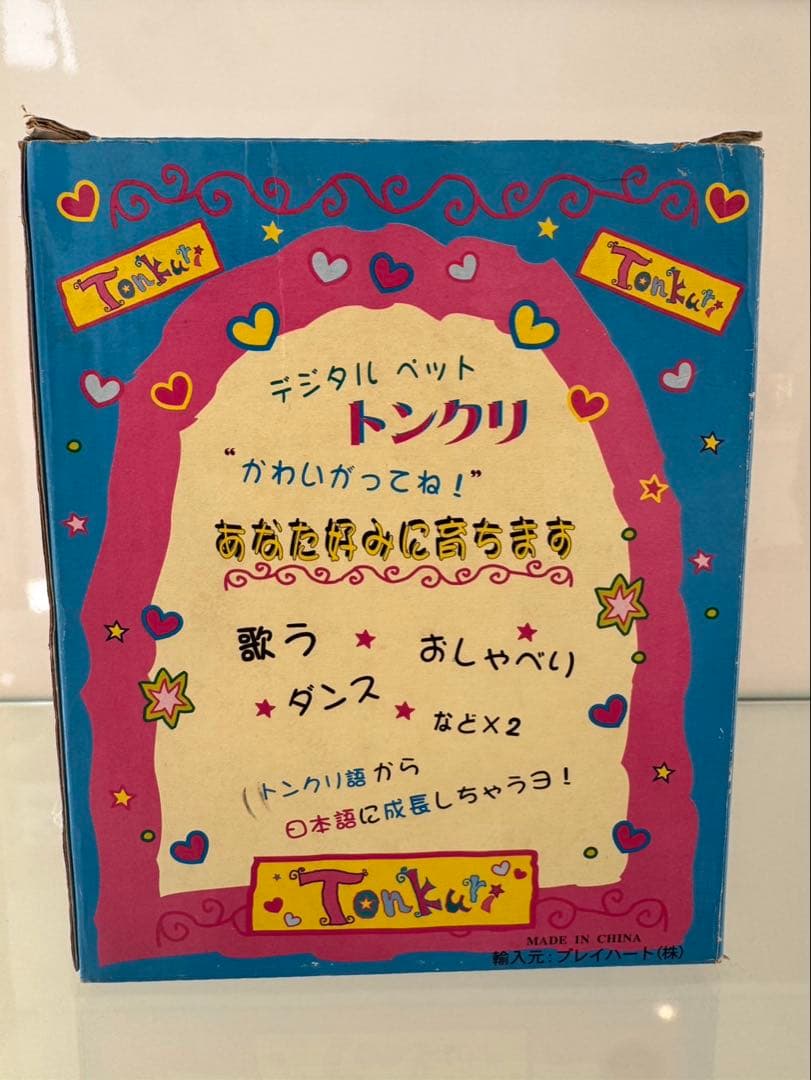 Tonkuri
Tonkuri
デジタル ペット
トンクリ
"かわいがってね!"
あなた好みに育ちます
歌う ★ おしゃべり ★
★ ダンス ★ など×2
トンクリ語から
日本語に成長しちゃうヨ!
Tonkuri
MADE IN CHINA
輸入元:プレイハート(株)